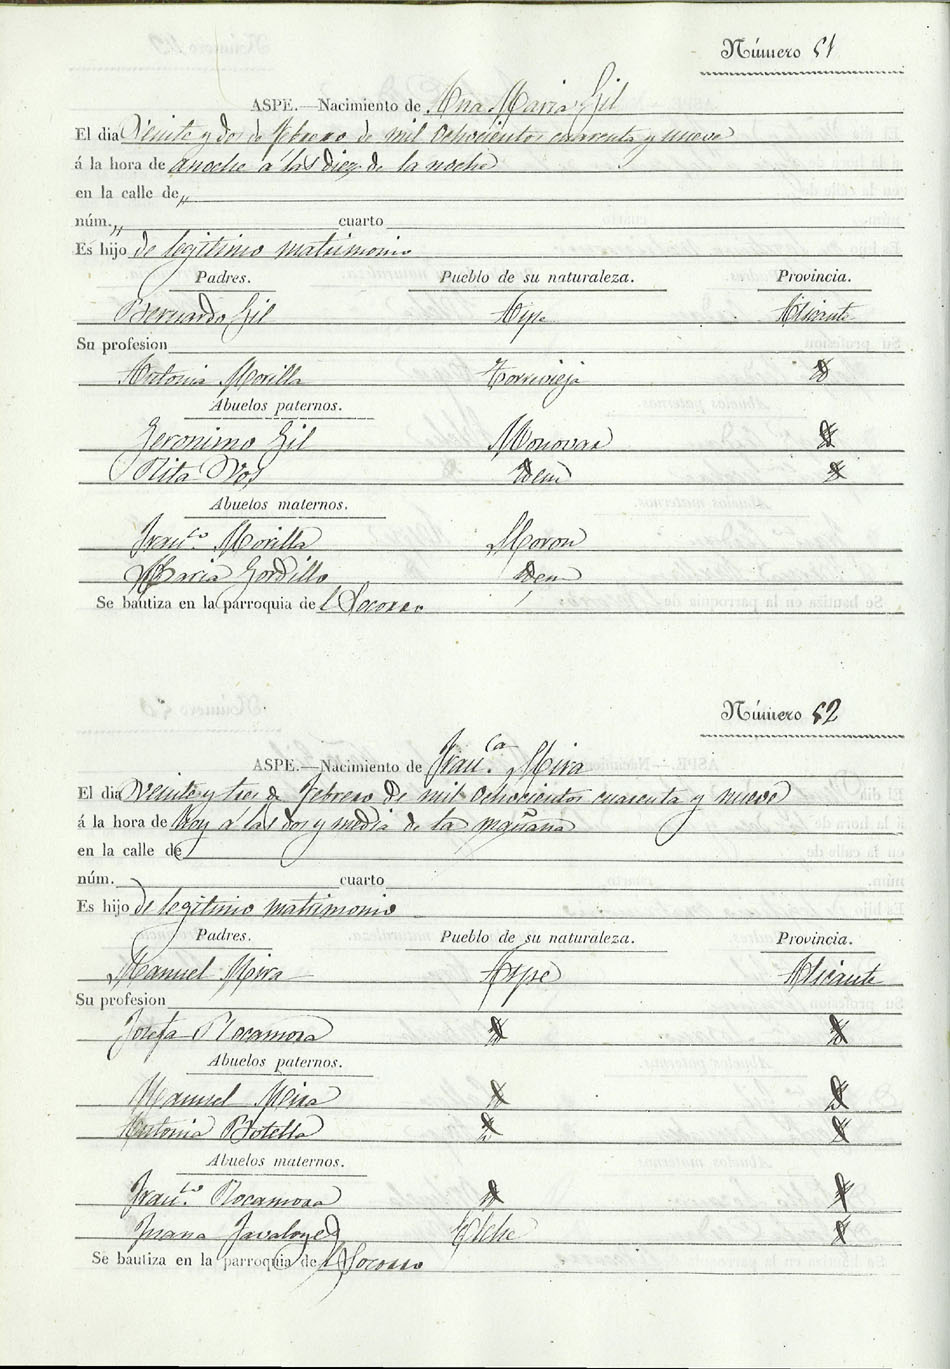 Número 51
ASPE.—Nacimiento de Ana Maria Gil
El dia Veinte y dos de febrero de mil ochocientos cuarenta y nueve
á la hora de anoche a las diez de la noche
en la calle de „
núm. „ cuarto
Es hijo de legitimo matrimonio
Padres. Pueblo de su naturaleza. Provincia.
Bernardo Gil Aspe Alicante
Su profesion
Antonia Morilla Torrivieja
Abuelos paternos.
Geronimo Gil Monovar
Rita Idem
Abuelos maternos.
Franco. Morilla Moron
Maria Gordillo Idem
Se bautiza en la parroquia del Socorro
Número 52
ASPE.—Nacimiento de Franca. Mira
El dia Veinte y tres de Febrero de mil ochocientos cuarenta y nueve
á la hora de hoy a las dos y media de la mañana
en la calle de
núm. cuarto
Es hijo de legitimo matrimonio
Padres. Pueblo de su naturaleza. Provincia.
Manuel Mira Aspe Alicante
Su profesion
Josefa Rocamora
Abuelos paternos.
Manuel Mira
Antonia Botella
Abuelos maternos.
Franco. Rocamora
Juana Javaloyes Elche
Se bautiza en la parroquia del Socorro